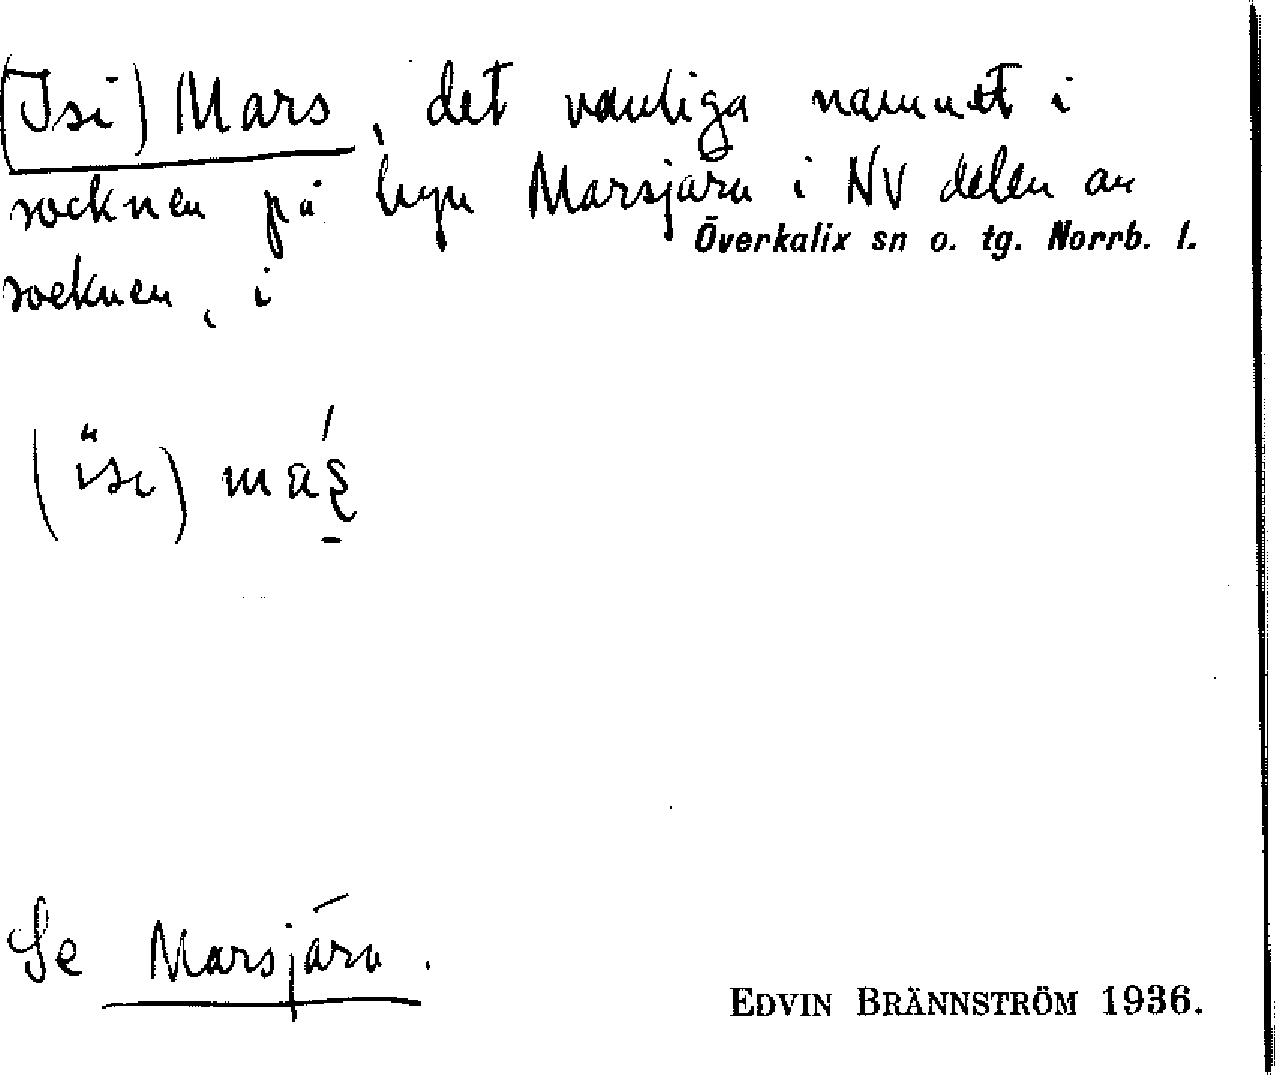 (Isi) Mars, det vanliga namnet i
socknen på byn Marsjärv i NV delen av
Överkalix sn o. tg. Norrb. l.
socknen, i
(isi)
Se Marsjärv.
EDVIN BRÄNNSTRÖM 1936.